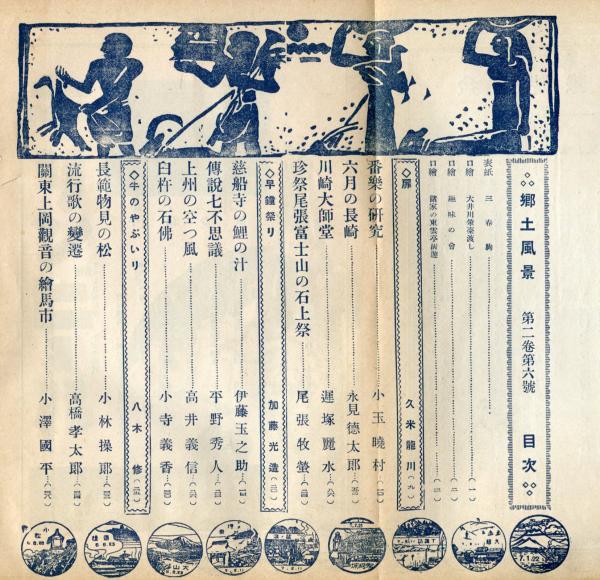 ◇◇郷土風景 第二卷第六號 目次◇◇
表紙 三春駒
口繪 大井川輦臺渡し (一)
口繪 趣味の會 (二)
口繪 諸家の東雲亭 (三)
◇扉 久米龍川 (九)
番樂の研究 小玉曉村
六月の長崎 永見德太郎
川崎大師堂 遲塚麗水
珍祭尾張富士山の石上祭 尾張牧螢
◇早鐘祭り 加藤光造
慈船寺の鯉の汁 伊藤玉之助
傳說七不思議 平野秀人
上州の空つ風 高井義信
臼杵の石佛 小寺義香
◇牛のやぶいり 八木修
長範物見の松 小林操郎
流行歌の變遷 高橋孝太郎
關東上岡觀音の繪馬市 小澤國平